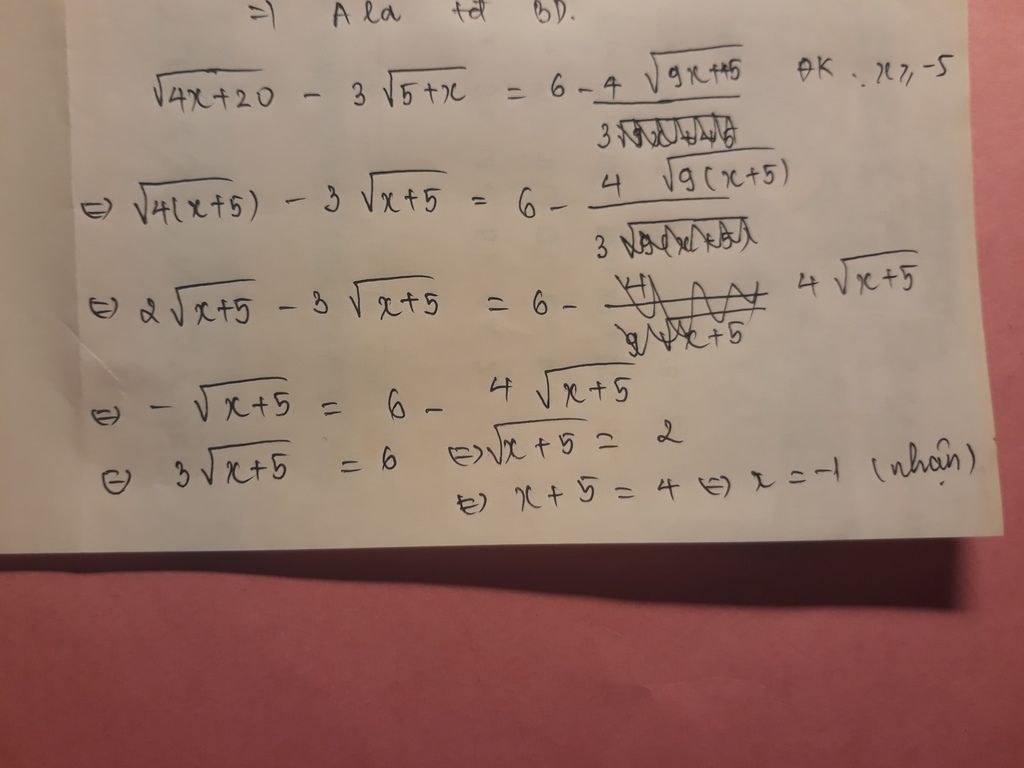 =) A là tđ BD.
√4x+20 - 3 √5+x = 6 - 4 √9x+45 / 3 ĐK : x ≥ -5
⇔ √4(x+5) - 3 √x+5 = 6 - 4 √9(x+5) / 3
⇔ 2 √x+5 - 3 √x+5 = 6 - 4 √x+5
⇔ - √x+5 = 6 - 4 √x+5
⇔ 3 √x+5 = 6 ⇔ √x+5 = 2
⇔ x + 5 = 4 ⇔ x = -1 (nhận)